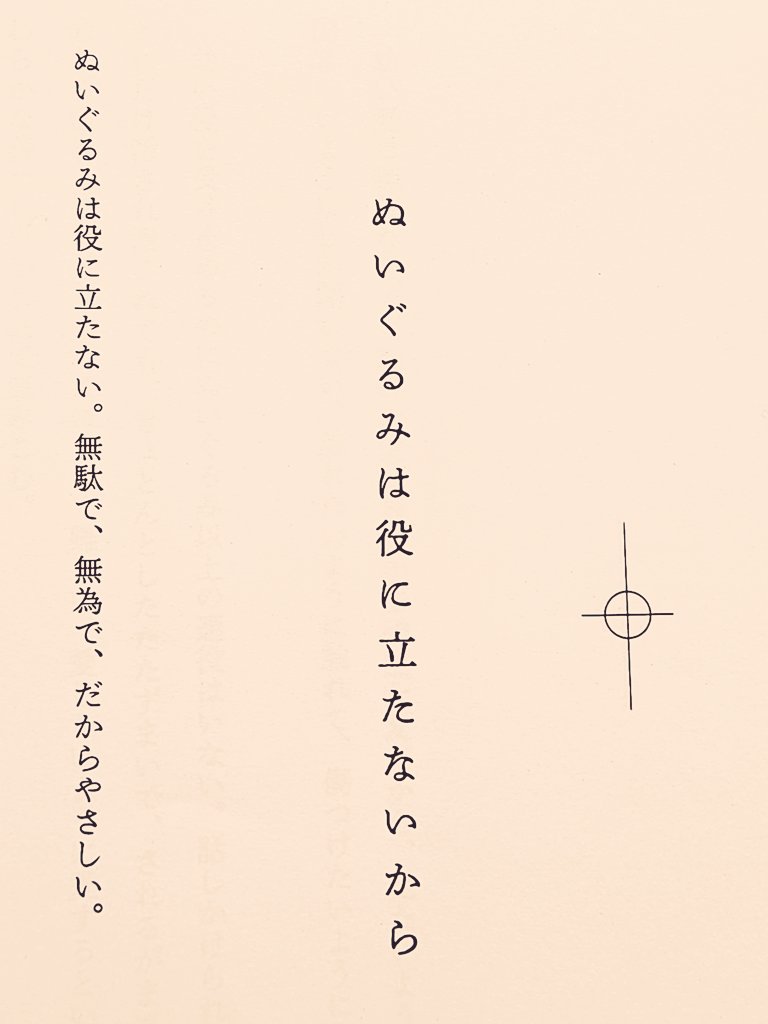 ぬいぐるみは役に立たないから
ぬいぐるみは役に立たない。無駄で、無為で、だからやさしい。